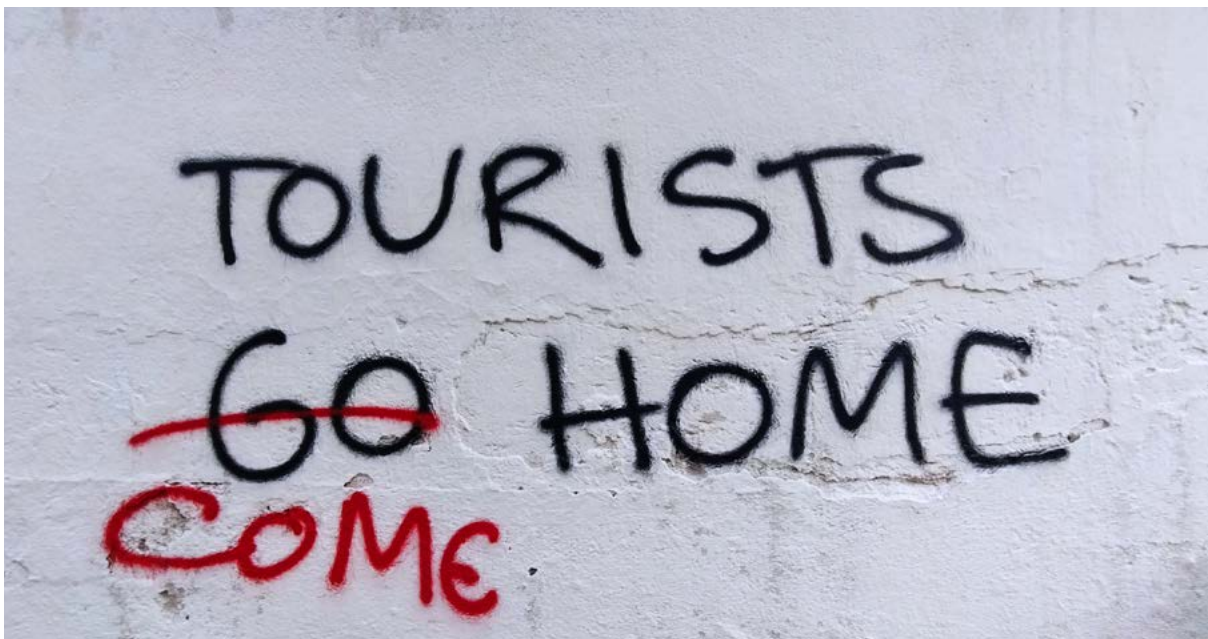 TOURISTS
GO HOME
COME